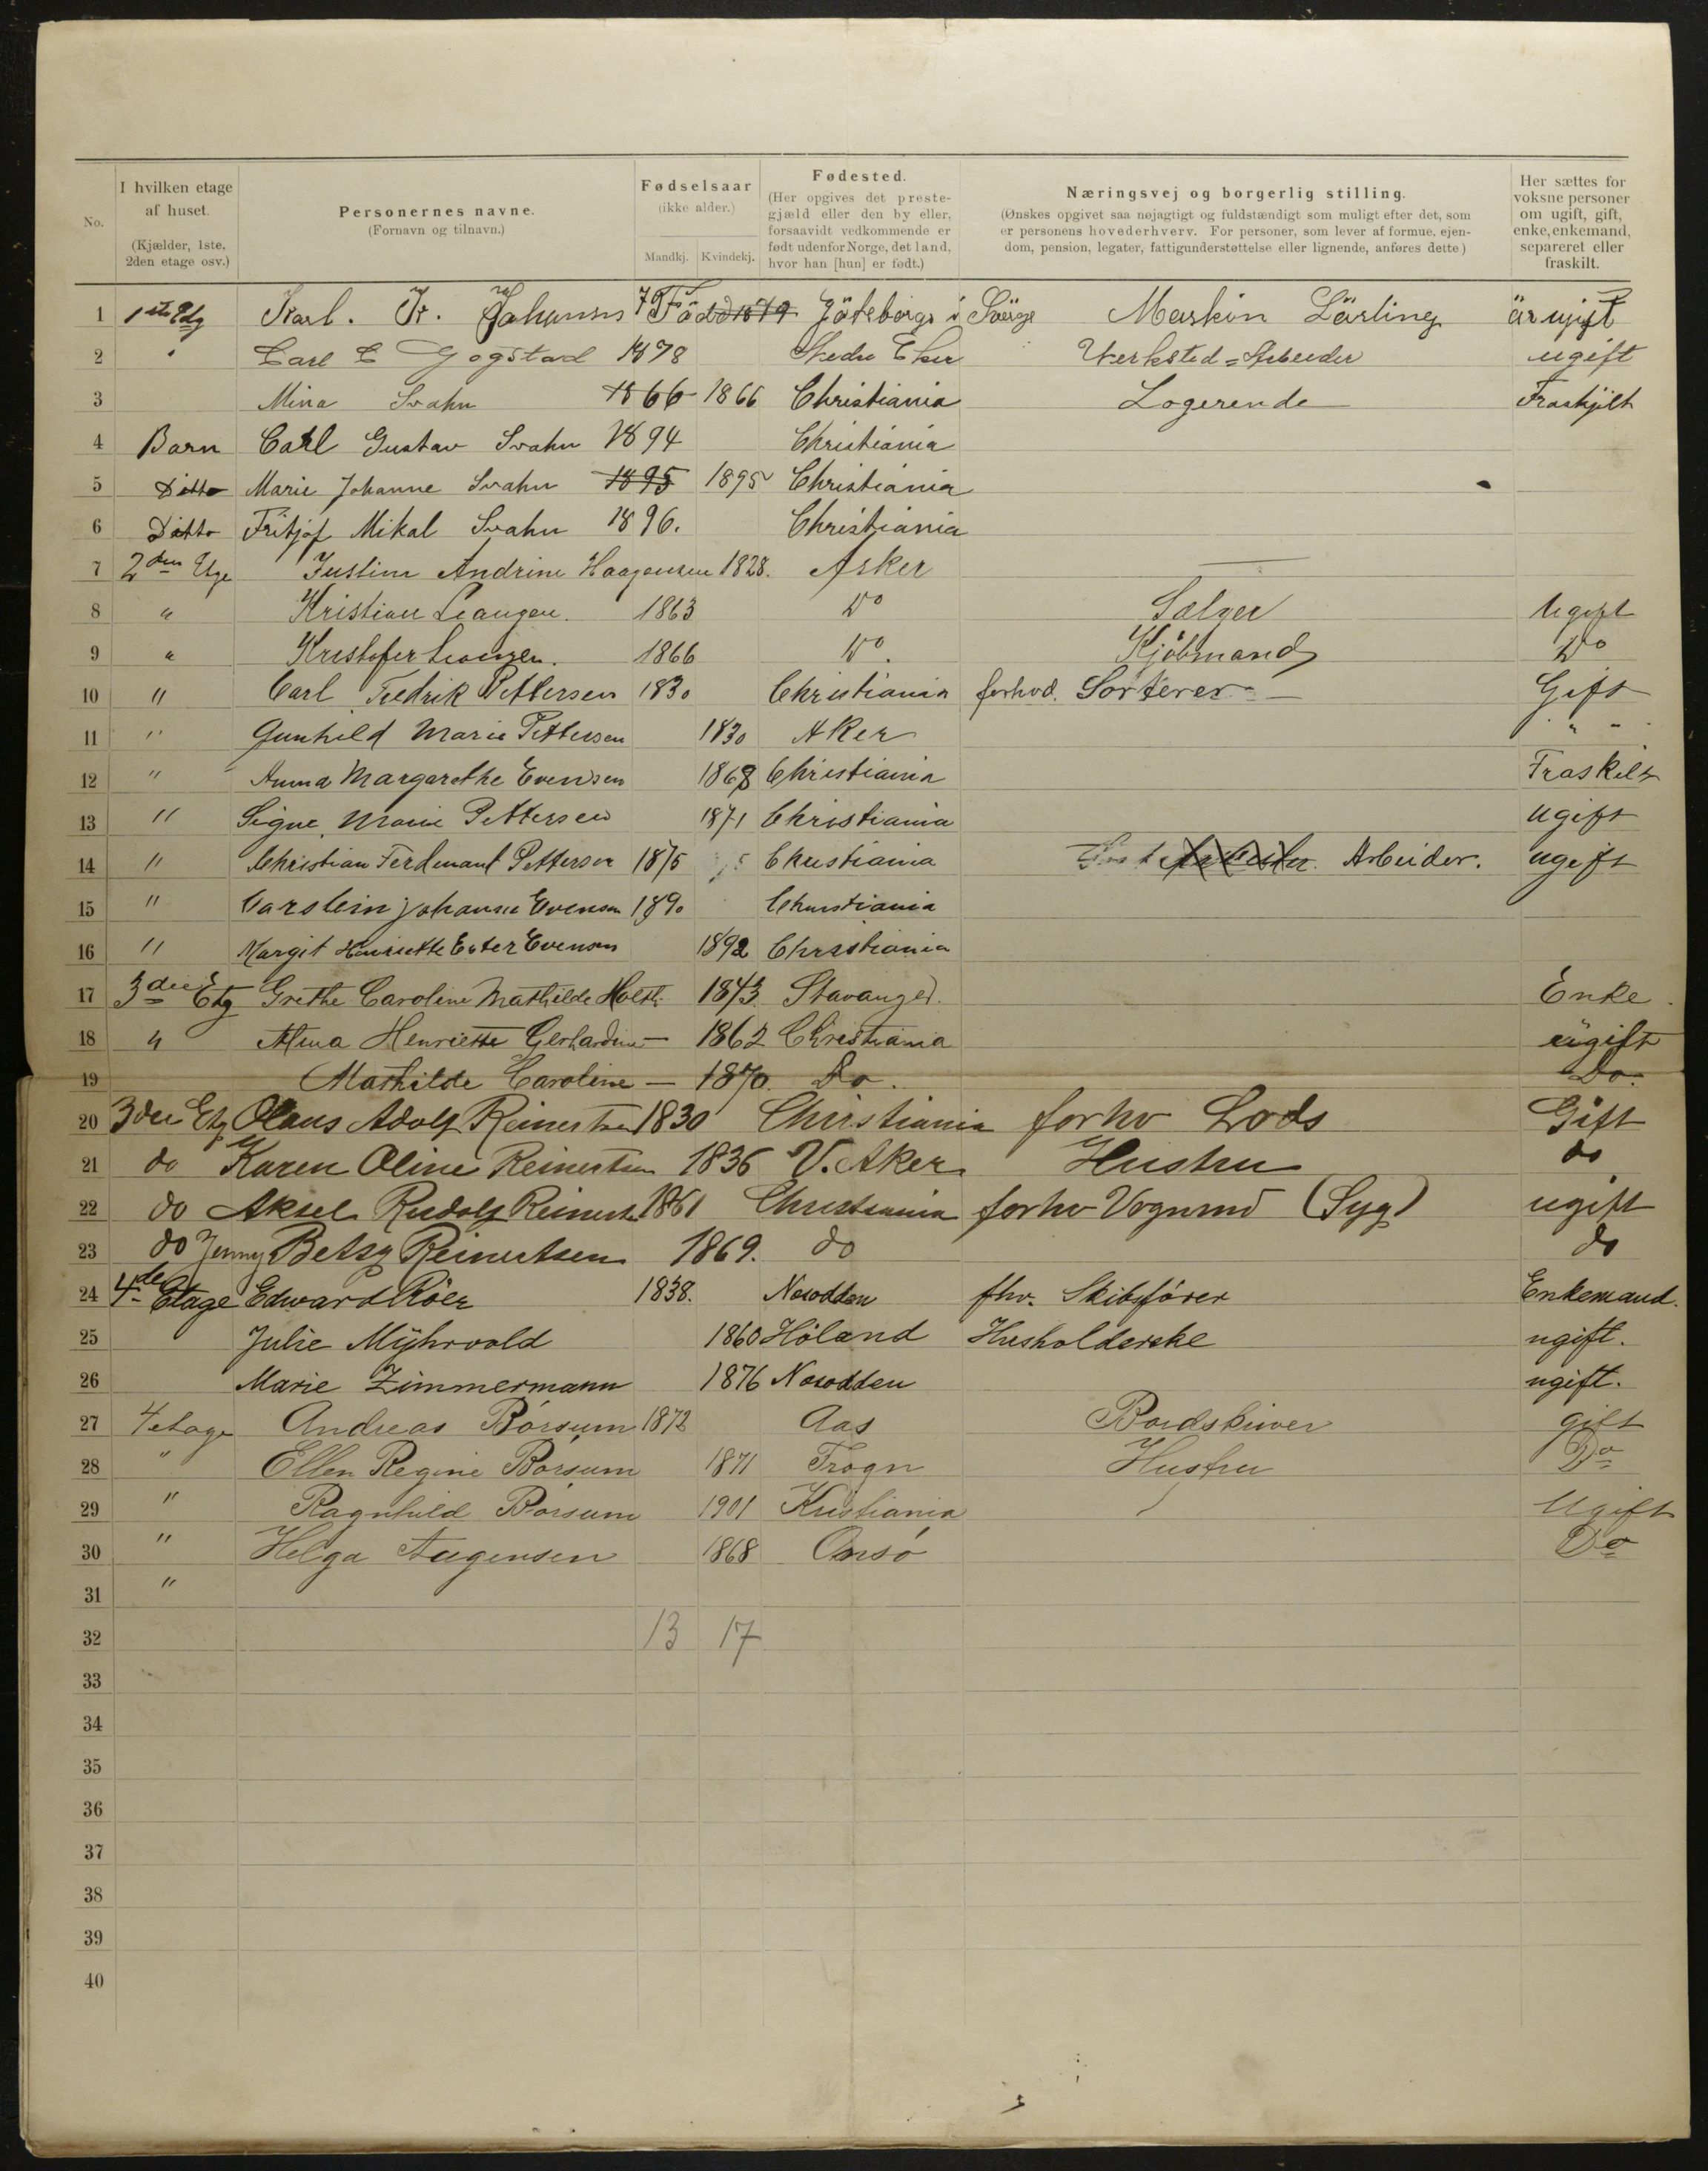 No.
I hvilken etage af huset. (Kjælder, 1ste, 2den etage osv.)
Personernes navne. (Fornavn og tilnavn.)
Fødselsaar (ikke alder.) Mandkj. Kvindekj.
Fødested. (Her opgives det prestegjæld eller den by eller, forsaavidt vedkommende er født udenfor Norge, det land, hvor han [hun] er født.)
Næringsvej og borgerlig stilling. (Ønskes opgivet saa nøjagtigt og fuldstændigt som muligt efter det, som er personens hovederhverv. For personer, som lever af formue, ejendom, pension, legater, fattigunderstøttelse eller lignende, anføres dette)
Her sættes for voksne personer om ugift, gift, enke, enkemand, separeret eller fraskilt.
1 1ste Etg Karl. K. Johansn 79 Född 1879 Göteborgs i Sverge Maskin Lärling är ugift
2 " Carl C Gogstad 1878 Skedsu Eker Verksted=Arbeider ugift
3 Mina Svahn 1866 1866 Christiania Logerende Fraskjilt
4 Barn Carl Gustav Svahn 1894 Christiania
5 Ditto Marie Johanne Svahn 1895 1895 Christiania
6 Ditto Fritjof Mikal Svahn 1896. Christiania
7 2den Etge Justine Andrine Haagensen 1828. Asker —
8 " Kristian Leangen. 1863 Do Sælger Ugift
9 " Kristofer Leangen. 1866 Do. Kjöbmand Do
10 " Carl Fredrik Pettersen 1830 Christiania forhvd. Sorterer — Gift
11 " Gunhild Marie Pettersen 1830 Aker " "
12 " Anna Margarethe Evensen 1868 Christiania Fraskilt
13 " Signe Marie Pettersen 1871 Christiania ugift
14 " Christian Ferdinant Pettersen 1875 Christiania Arbeider. ugift
15 " Carstein Johannes Evensen 1890 Christiania
16 " Margit Henriette Ester Evensen 1892 Christiania
17 3die Etg Grethe Caroline Mathilde Holst. 1843 Stavanger. Enke
18 " Alma Henriette Gerhardine — 1862 Christiania ugift
19 Mathilde Caroline — 1870. Do. Do.
20 3die Etg Olaus Adolf Reinertsen 1830 Christiania forhv Lods Gift
21 do Karen Oline Reinertsen 1836 V. Aker Hustru do
22 do Aksel Rudolf Reinertsen 1861 Christiania forhv Vognmd (Syg) ugift
23 do Jenny Betsy Reinertsen 1869. do do
24 4de Etage Edward Röer 1838. Nesodden fhv. Skibsfører Enkemand.
25 Julie Myhrvold 1860 Höland Husholderske ugift.
26 Marie Zimmermann 1876 Nesodden ugift.
27 4 etage Andreas Børsum 1872 Aas Bordskriver gift
28 " Ellen Regine Børsum 1871 Frogn Hustru Do
29 " Ragnhild Børsum 1901 Kristiania Ugift
30 " Helga Augensen 1868 Onsø Do
31 "
32 13 17
33
34
35
36
37
38
39
40